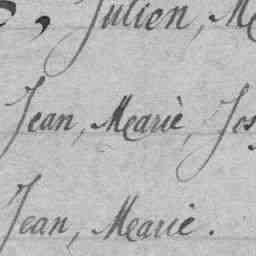 Julien,
Jean, Marie,
Jean, Marie.